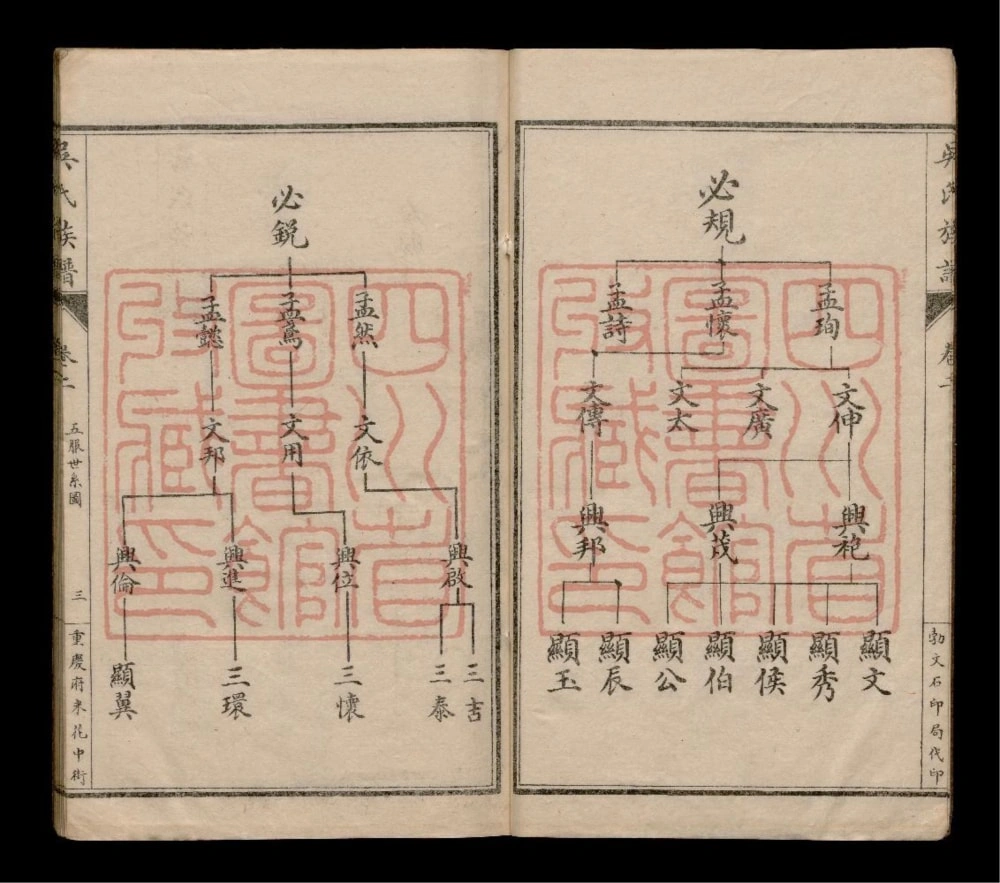 吳氏族譜
卷二
必規
孟珣
孟懷
孟詩
文伸
文廣
文太
文傳
興袍
興茂
興邦
顯文
顯秀
顯侯
顯伯
顯公
顯辰
顯玉
勃文石印局代印
四川省
圖書館
收藏印
必銳
孟然
孟鳶
孟懿
文依
文用
文邦
興啟
興位
興進
興倫
三吉
三泰
三懷
三環
顯翼
吳氏族譜
卷二
五服世系圖
三
重慶府米花中街
四川省
圖書館
收藏印